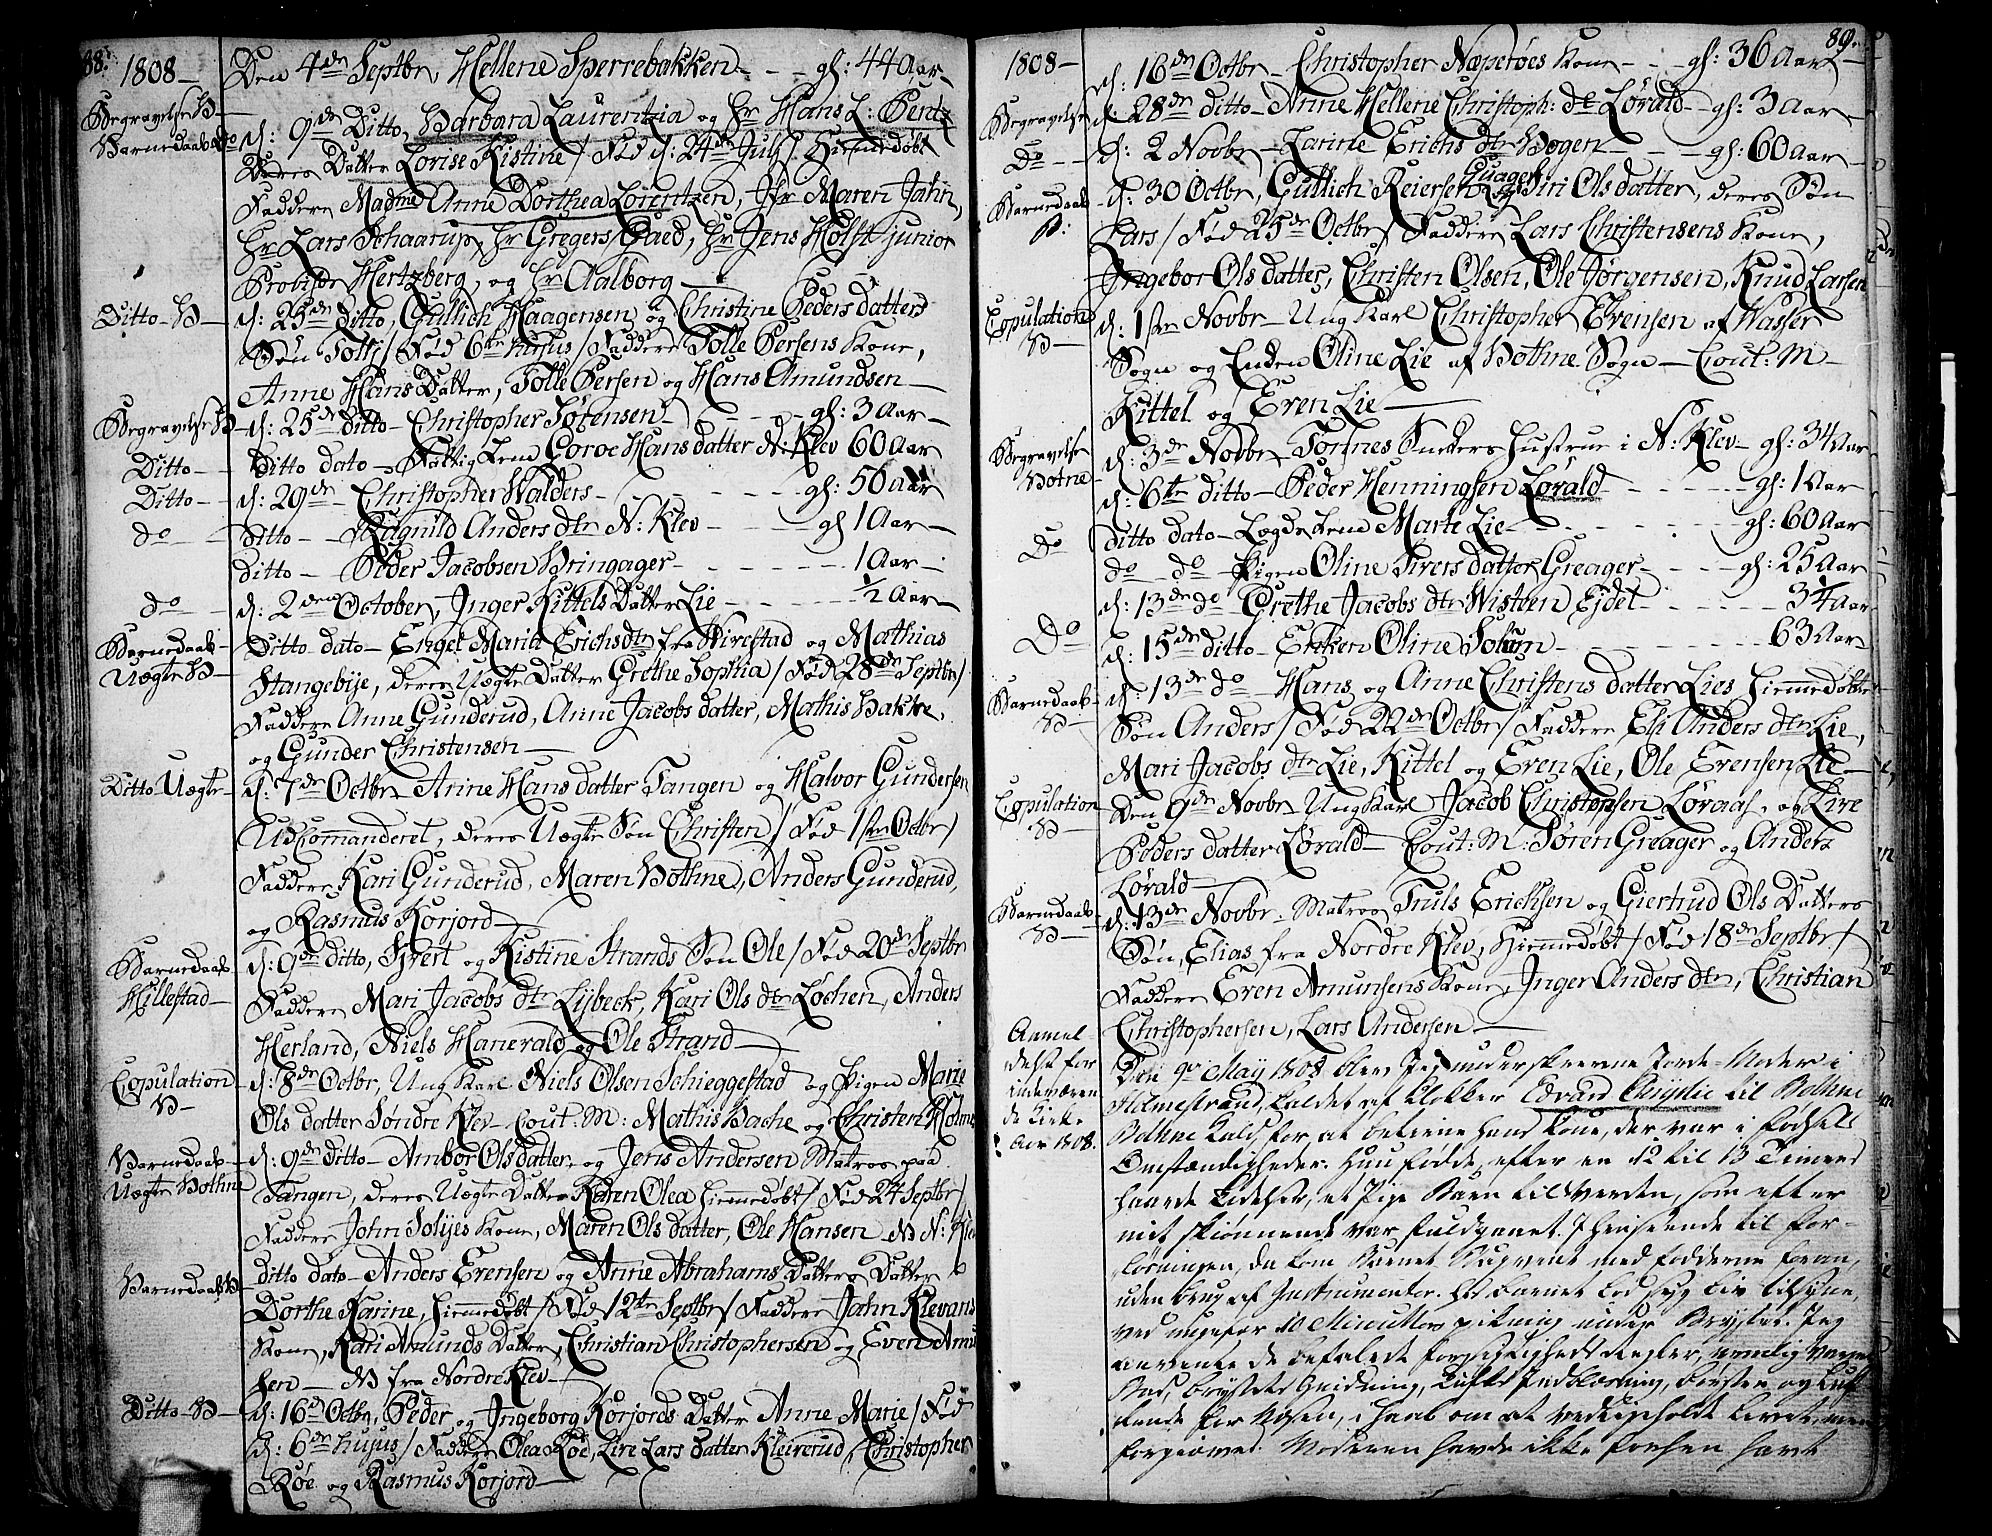 88.
1808 —
Den 4de Septbr, Hellene Sperrebakken - - - gl: 44 Aar —
Begravelse H —
Barnedaab do
d: 9de Ditto, Barbara Laurentzia og Hr Hans L: Bentz
Deres Datter Lovise Kistine / Fød d: 24de Julj / Hiemedøbt
Faddere Madme Anne Dorthea Lorentzen, Jfr Maren Jahn,
Hr Lars Schaarup, Hr Gregers Gaed, Hr Jens Holst junior
Probist Hertzberg, og Hr Aalborg —
Ditto - H —
d: 25de ditto, Gullich Haagensen og Christine Peders datters
Søn Tollj / Fød 6te hujus / Faddere Tolle Persens Kone,
Anne Hans Datter, Tolle Persen og Hans Amundsen —
Begravelse H —
d: 25de ditto - Christopher Sørensen - - - gl: 3 Aar —
Ditto —
Ditto dato - Fattig Lem Goroe Hansdatter N: Klev 60 Aar
Ditto —
d: 29de - Christopher Walders - - - gl: 50 Aar
do —
Ditto — Ragnild Anders dtr N: Klev - - - gl 1 Aar —
ditto — Peder Jacobsen Bringager - - - 1 Aar —
do —
d: 2den October, Inger Kittels Datter Lie - - - 1/2 Aar —
Barnedaab -
Uægte H —
Ditto dato - Engel Maria Erichsdtr fra Wirestad og Mathias
Stangebije, deres Uægte Datter Grethe Sophia / Fød 28de Septbr /
Faddere Anne Gunderud, Anne Jacobs datter, Mathis Bakke,
og Gunder Christensen —
Ditto Uægte -
d: 7de Octbr Anne Hans datter Tangen og Halvor Gundersen
Udcommanderet, deres Uægte Søn Christen / Fød 1ste Octbr /
Faddere Kari Gunderud, Maren Bothne, Anders Gunderud,
og Rasmus Korjord —
Barnedaab
Hillestad —
d: 9de ditto, Sivert og Kistine Strands Søn Ole / Fød 20de Septbr
Faddere Mari Jacobs dtr Lijbeck, Kari Ols dtr Lochen, Anders
Herland, Niels Hanevald og Ole Strand —
Copulation
B —
d: 8de Octbr, Ung Karl Niels Olsen Schieggestad og Pigen Marie
Ols datter Søndre Klev - Cout: M: Mathis Bache og Christen Holme
Barnedaab -
Uægte Bothne
d: 9de ditto - Ambor Olsdatter, og Jens Andersen Matros paa
Tangen, deres Uægte Datter Karen Olea Hiemedøbt / Fød 24 Septbr /
Faddere John Solijes Kone, Maren Ols datter, Ole Hansen - N: Klev
Barnedaab B
ditto dato - Anders Erensen og Anne Abrahams Datters Datter
Dorthe Karine, Hiemedøbt / Fød 12te Septbr / Faddere Jahn Klevans
Kone, Kari Amunds Datter, Christian Christophersen og Even Amu
sen — fra Nordre Klev —
Ditto - B —
d: 16de Octbr, Peder og Ingeborg Korjords Datter Anne Marie / Fød
d: 6te hujus / Faddere Olea Røe, Lire Lars datter Kleiverud, Christopher
Røe og Rasmus Korjord —
89.
1808 —
d: 16de Octbr - Christopher Næperøes Kone - - - gl: 36 Aar
Begravelse
d: 28de ditto - Anne Hellene Christoph: dr Lørald - gl: 3 Aar
Do - -
d: 2 Novbr - Karine Erichs dtr Bogen - - - gl: 60 Aar
Barnedaab
B:
d: 30 Octbr, Gullich Reiersen Guager og Siri Olsdatter, deres Søn
Lars / Fød 25de Octbr / Faddere Lars Christensens Kone,
Ingebor Ols datter, Christen Olsen, Ole Jørgensen, Knud Larsen
Copulation
B —
d: 1ste Novbr - Ung Karl Christopher Erensen af Wasser
Sogn og Enken Oline Lie af Bothne Sogn — Cout: M —
Kittel og Eren Lie —
Begravelse
Botne -
d: 3de Novbr Tormes Smeders Hustrue i N: Klev - gl: 34 Aar
d: 6te ditto - Peder Henningsen Lørald - - - gl: 1 Aar
Do
ditto dato - Logde Lem Marte Lie - - - gl: 60 Aar
do - do - Pigen Oline Sivers datter Greager - - - gl: 25 Aar
d: 13de do Grethe Jacobs dtr Wisteen Ejdet - - - 3/4 Aar
Do
d: 15de ditto - Enken Oline Solum - - - 63 Aar
Barnedaab
B —
d: 13de do - Hans og Anne Christens datter Lies Hiemedøbte
Søn Anders / Fød 22de Octbr / Faddere Eli Anders dtr Lie,
Mari Jacobs dtr Lie, Kittel og Eren Lie, Ole Erensen Lie —
Copulation
B —
Den 9de Novbr Ung Karl Jacob Christophsen Løraas, og Lire
Peders datter Lørald - Cout: M: Søren Greager og Anders
Lørald —
Barnedaab
B —
d: 13de Novbr - Matros Truls Erichsen og Giertrud Ols Datters
Søn, Elias fra Nordre Klev, Hiemedøbt / Fød 18de Septbr /
Faddere Eren Amunsens Kone, Inger Anders dtr, Christian
Christophersen, Lars Andersen —
Anmel
delse for
indeværen
de Kirke
Aar 1808.
Den 9de May 1808 blev Jeg underskrevne Jorde-Moder i
Holmestrand, kaldet af Klokker Edvard til Bothne
Bothne Kald, for, at betiene hans Kone, der var i Fødsels
Omstændigheder. Hun fødde, efter en 12 til 13 Timers
haarde Lidelser, et Pige Barn til Verden, som efter
mit skiønnende var fuldbaaret. I henseende til For-
løsningen, da kom Barnet Bagvent med Fødderne foran,
uden brug af Instrumenter. Ved Barnet lod sig Liv tilsyne,
ved ungefær 10 Minutters pikning under Brystet. Jeg
anvendte de befalede forsigtighedsregler, nemlig varme
Bad, brystets Gnidning, Lufts Indblæsning, børsten og Luf-
tende for Næsen, i haab om at vedligeholde Livet, men
forgieves. Moderen havde ikke forhen havt